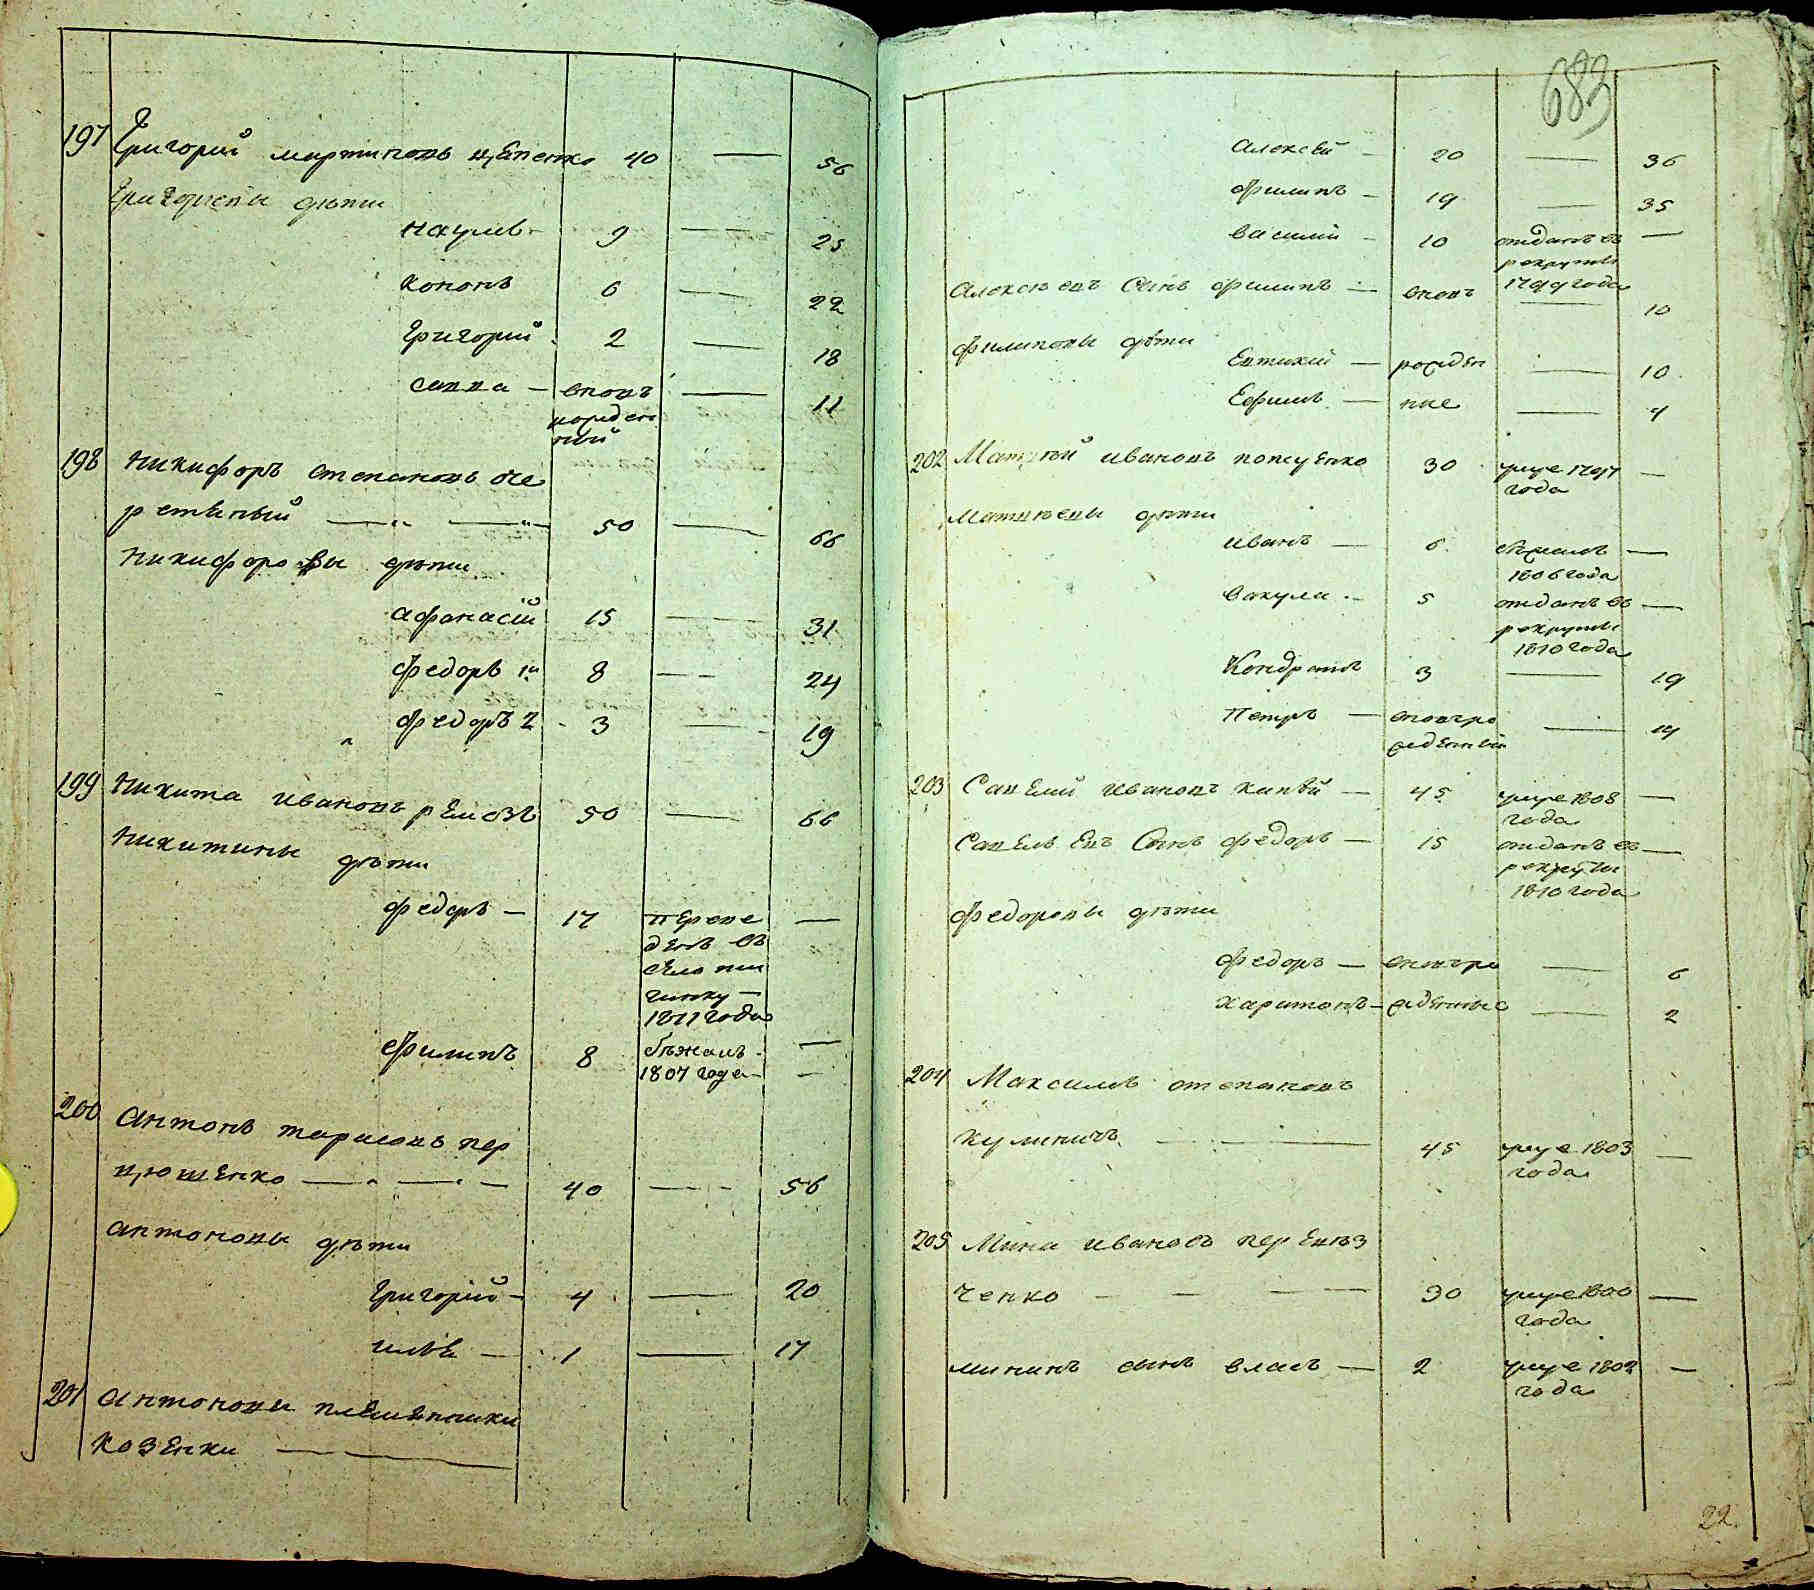 197 Григорий мартиновъ цѣпенко 40 — 56
Григориевы дѣти
наумъ 9 — 25
кононъ 6 — 22
Григорий 2 — 18
савва — вновь — 11
рожден
ный
198 никифоръ степановъ оче
ретяный — 50 — 66
никифоровы дѣти
афанасій 15 — 31
федоръ 1й 8 — 24
федоръ 2 - 3 — 19
199 никита ивановъ ремезъ 50 — 66
никитины дѣти
федоръ — 17 переве —
денъ въ
село
1811 года
Филипъ 8 бѣжалъ —
1807 года —
200 антонъ тарасовъ пер
цюшенко — 40 — 56
антоновы дѣти
Григорій — 4 — 20
илья — 1 — 17
201 антоновы племенники
козенки —
683
алексѣй — 20 — 36
филипъ — 19 — 35
василий — 10 отданъ въ —
рекруты
1799 года
алексѣевъ сынъ филипъ — вновь — 10
филиповы дѣти
Евтихий — рожден — 10
Ефимъ — ные — 4
202 Матвѣй ивановъ 30 умре 1797 —
года
матвѣевы дѣти
иванъ — 6 бѣжалъ —
1806 года
вакула — 5 отданъ въ —
рекруты
1810 года
Кондратъ 3 — 19
петръ — вновь ро — 14
жденный
203 Савелий ивановъ 45 умре 1808 —
года
савельевъ сынъ федоръ — 15 отданъ въ —
рекруты
1810 года
федоровы дѣти
федоръ — вновь ро — 6
харитонъ — жденные — 2
204 Максимъ степановъ
куминичъ — 45 умре 1803 —
года
205 Мина ивановъ перевѣз
ченко — 30 умре 1800 —
года
мининъ сынъ власъ — 2 умре 1802 —
года
22.